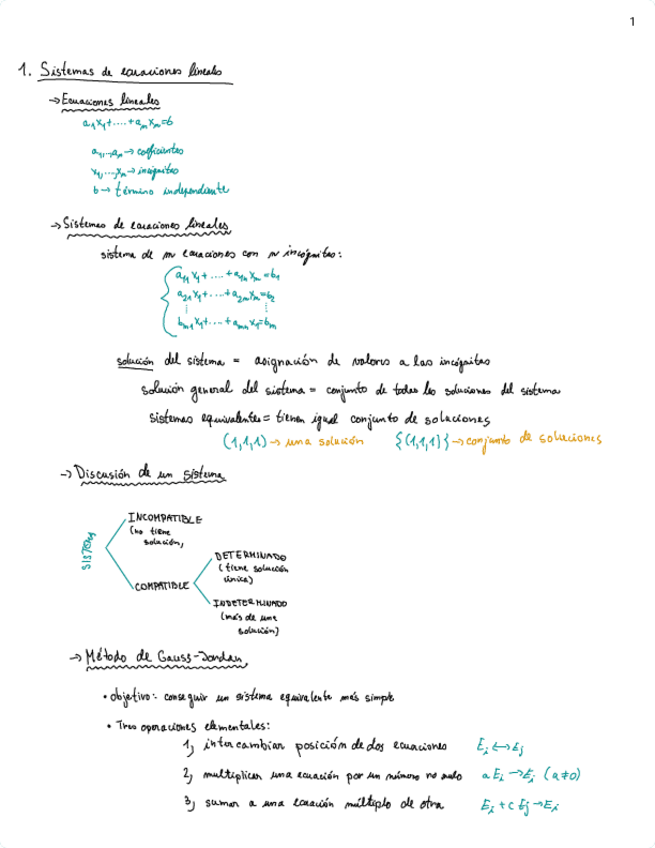 1
1. Sistemas de ecuaciones lineales
→ Ecuaciones lineales
a₁x₁+....+aₙxₙ=b
a₁,...,aₙ → coeficientes
x₁,...,xₙ → incógnitas
b → término independiente
→ Sistemas de ecuaciones lineales
sistema de m ecuaciones con n incógnitas:
a₁₁x₁+....+a₁ₙxₙ=b₁
a₂₁x₁+....+a₂ₙxₙ=b₂
⋮ ⋮
bₘ₁x₁+....+aₘₙx₁=bₘ
solución del sistema = asignación de valores a las incógnitas
solución general del sistema = conjunto de todas las soluciones del sistema
sistemas equivalentes = tienen igual conjunto de soluciones
(1,1,1) → una solución {(1,1,1)} → conjunto de soluciones
→ Discusión de un sistema
SISTEMA
INCOMPATIBLE
(no tiene
solución)
COMPATIBLE
DETERMINADO
(tiene solución
única)
INDETERMINADO
(más de una
solución)
→ Método de Gauss-Jordan
• objetivo: conseguir un sistema equivalente más simple
• Tres operaciones elementales:
1) intercambiar posición de dos ecuaciones Eᵢ ↔ Eⱼ
2) multiplicar una ecuación por un número no nulo aEᵢ → Eᵢ (a≠0)
3) sumar a una ecuación múltiplo de otra Eᵢ + c Eⱼ → Eᵢ